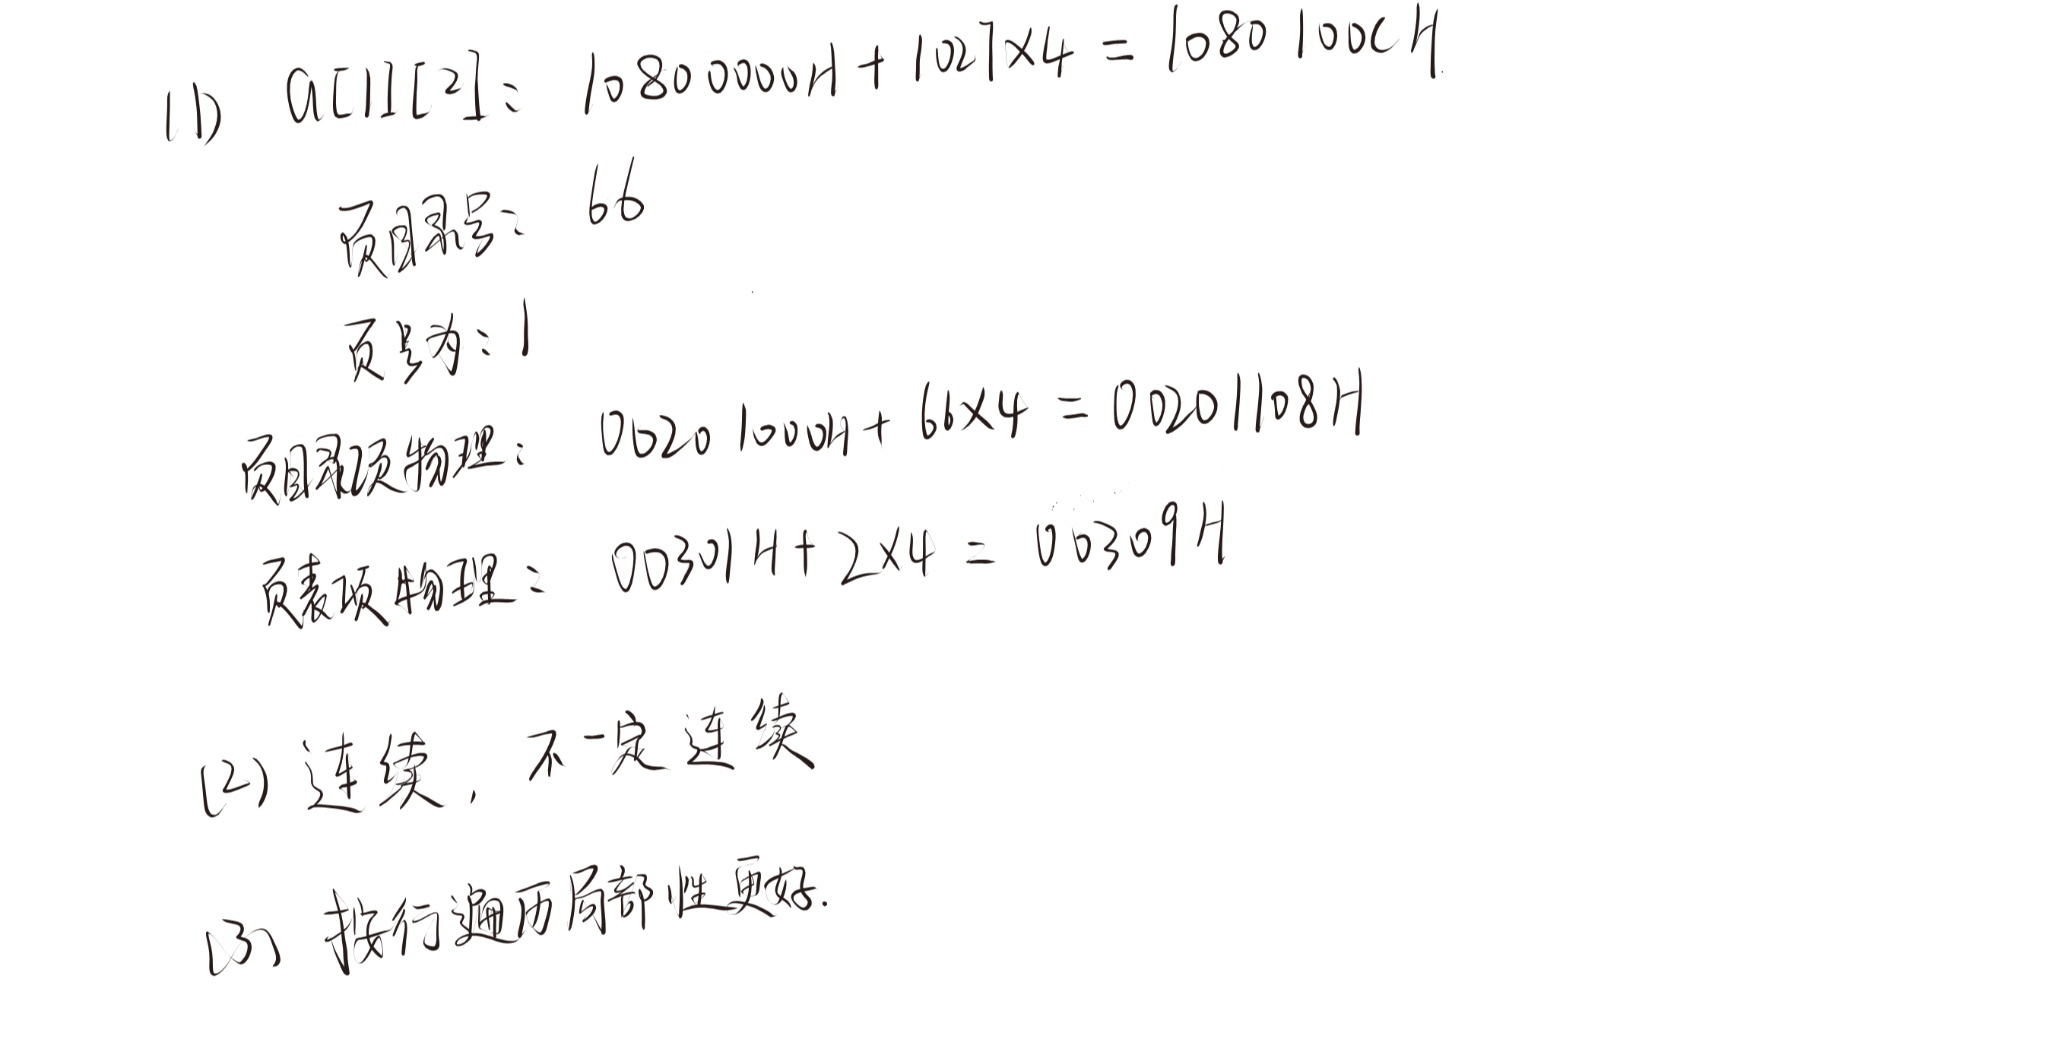 (1) a[1][2]: 10800000H + 1027×4 = 1080100CH.
页目录号: 66
页号为: 1
页目录项物理: 00201000H + 66×4 = 00201108H
页表项物理: 00301H + 2×4 = 00309H
(2) 连续, 不一定连续
(3) 按行遍历局部性更好.